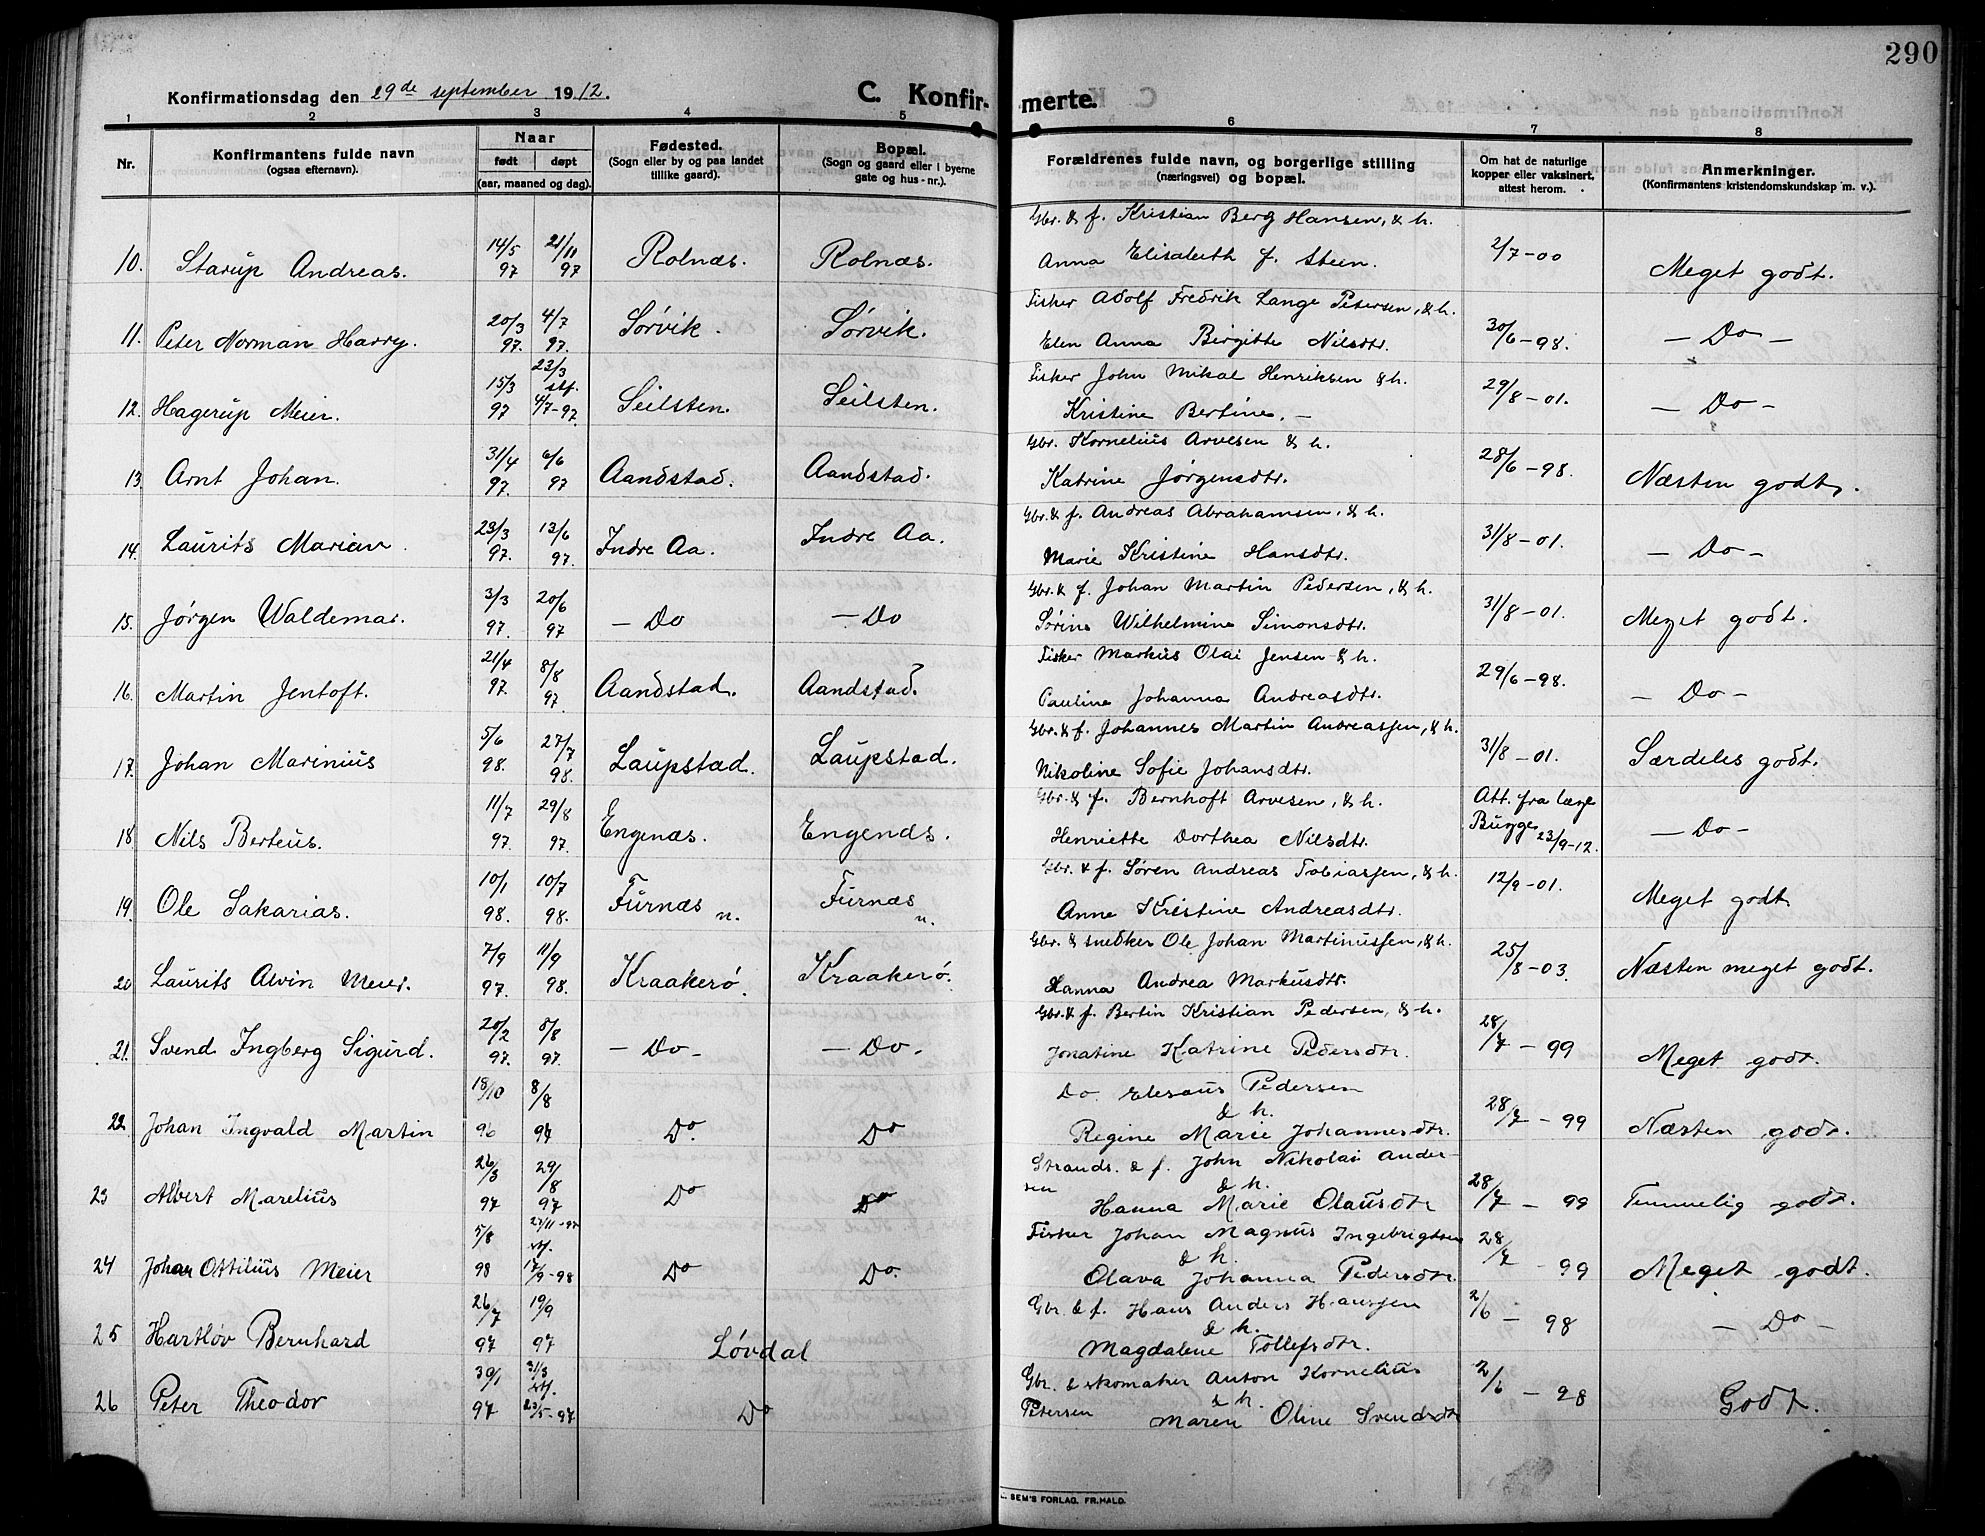 290
Konfirmationsdag den 29de september 1912.
C. Konfirmerte.
1 2 3 4 5 6 7 8
Nr. Konfirmantens fulde navn (ogsaa efternavn). Naar født døpt (aar, maaned og dag). Fødested. (Sogn eller by og paa landet tillike gaard). Bopæl. (Sogn og gaard eller i byerne gate og hus-nr.). Forældrenes fulde navn, og borgerlige stilling (næringsvei) og bopæl. Om hat de naturlige kopper eller vaksinert, attest herom. Anmerkninger. (Konfirmantens kristendomskundskap m. v.).
Gbr. & f. Kristian Berg Hansen, & h.
10. Starup Andreas. 14/5 97 21/11 97 Rolnæs. Rolnæs. Anna Elisabeth f. Steen. 2/7-00 Meget godt.
Fisker Adolf Fredrik Lange Petersen, & h.
11. Peter Norman Harry. 20/3 97. 4/7 97. Sørvik. Sørvik. Elen Anna Birgitte Nilsdtr. 30/6-98. - Do -
Fisker John Mikal Henriksen & h.
12. Hagerup Meier. 15/3 97 23/3 stf. 4/7-97. Seilsten. Seilsten. Kristine Bertine. - 29/8-01. - Do -
Gbr. Kornelius Arvesen & h.
13. Arnt Johan. 31/4 97. 6/6 97 Aandstad. Aandstad. Katrine Jørgensdtr. 28/6-98. Næsten godt.
Gbr. & f. Andreas Abrahamsen, & h.
14. Laurits Marian. 23/3 97. 13/6 97. Indre Aa. Indre Aa. Marie Kristine Hansdtr. 31/8-01. - Do -
Gbr. & f. Johan Martin Pedersen, & h.
15. Jørgen Waldemar. 3/3 97. 20/6 97 - Do - Do Sørine Wilhelmine Simonsdtr. 31/8-01. Meget godt.
Fisker Markus Olai Jensen & h.
16. Martin Jentoft. 21/4 97. 8/8 97. Aandstad. Aandstad. Pauline Johanna Andreasdtr. 29/6-98. - Do -
Gbr. & f. Johannes Martin Andreassen, & h.
17. Johan Marinius 5/6 98. 27/7 98. Laupstad. Laupstad. Nikoline Sofie Johansdtr. 31/8-01. Særdeles godt.
Gbr. & f. Bernhoft Arvesen, & h.
18 Nils Berteus. 11/7 97. 29/8 97. Engenæs. Engenæs. Henriette Dorthea Nilsdtr. Att. fra læge Bugge 23/9-12. - Do -
Gbr. & f. Søren Andreas Tobiassen, & h.
19. Ole Sakarias. 10/1 98. 10/7 98. Furnæs n. Furnæs n. Anne Kristine Andreasdtr. 12/9-01. Meget godt
Gbr. & snedker Ole Johan Martinussen, & h.
20 Laurits Alvin Meier. 7/9 97. 11/9 98. Kraakerø. Kraakerø. Hanna Andrea Markusdtr. 25/8-03. Næsten meget godt.
Gbr. & f. Bertin Kristian Pedersen, & h.
21. Svend Ingberg Sigurd. 20/2 97. 8/8 97. - Do - - Do. Jonatine Katrine Pedersdtr. 28/7-99 Meget godt.
Do. Elesaus Pedersen & h.
22. Johan Ingvald Martin 18/10 96 8/8 97 Do. Do Regine Marie Johannesdtr. 28/7-99 Næsten godt.
Strands. & f. John Nikolai Andersen & h.
23 Albert Marelius 26/3 97 29/8 97 Do Do Hanna Marie Olausdtr 28/7-99 Temmelig godt.
Fisker Johan Magnus Ingebrigtsen & h.
24 Johan Ottilius Meier 5/8 98 stf. 17/9-98 Do Do. Olava Johanna Pedersdtr. 28/7-99 Meget godt.
Gbr. & f. Hans Anders Hanssen & h.
25 Hartløv Bernhard 26/7 97 19/9 97 Løvdal Magdalene Tollefsdtr. 2/6-98 - Do -
Gbr. & skomaker Anton Kornelius Petersen & h.
26 Peter Theodor 30/1 97 31/3 stf. 23/5-97 Do Maren Oline Svendsdtr 2/6-98 Godt.
SEM'S FORLAG. FR.HALD.